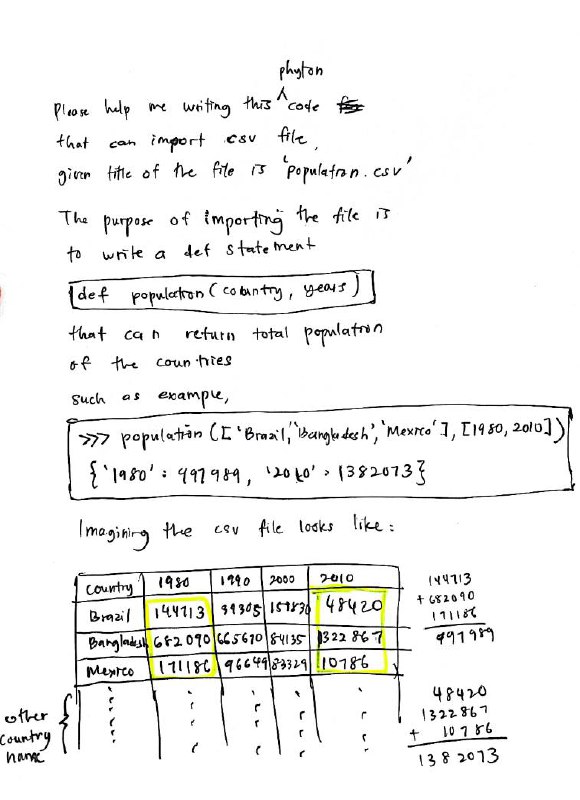 phyton
Please help me writing this ^ code
that can import csv file,
given title of the file is 'population.csv'
The purpose of importing the file is
to write a def statement
def population(country, years)
that can return total population
of the countries
such as example,
>>> population(['Brazil','Bangladesh','Mexico'], [1980, 2010])
{'1980': 997989, '2010': 1382073}
Imagining the csv file looks like:
country 1980 1990 2000 2010
Brazil 144713 39305 48420
Bangladesh 682090 665670 84135 1322867
Mexico 171186 96649 83329 10786
other
country
name
144713
+ 682090
171186
997989
48420
1322867
+ 10786
1382073